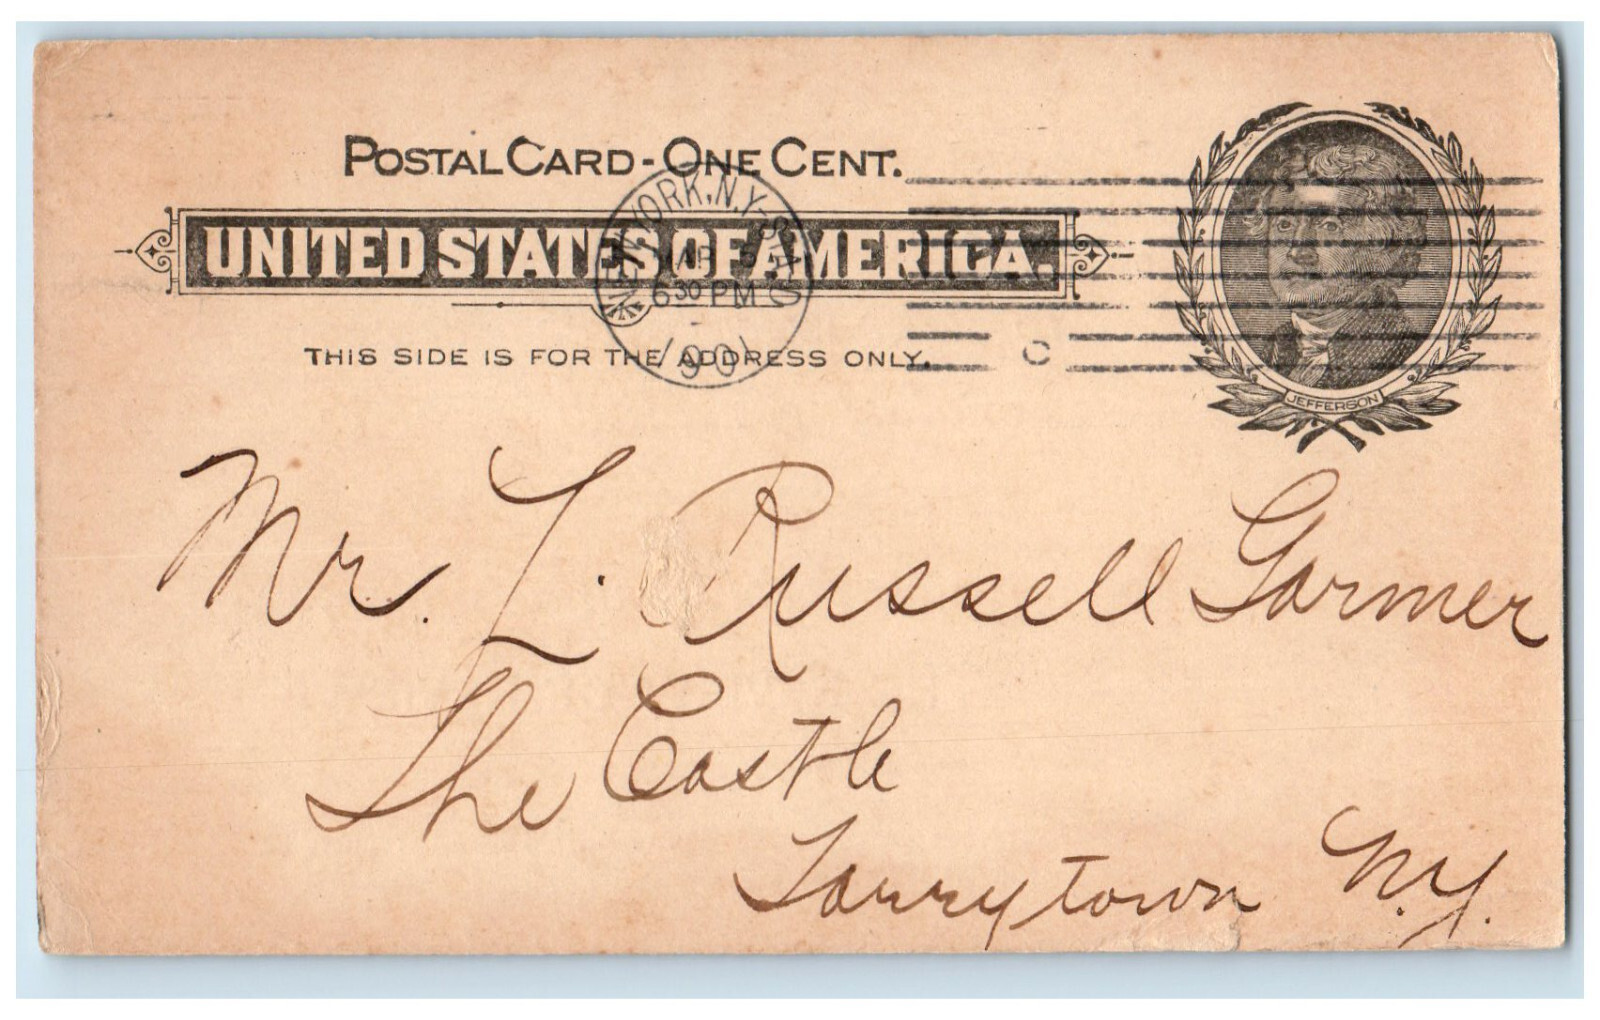 POSTAL CARD - ONE CENT.
UNITED STATES OF AMERICA.
THIS SIDE IS FOR THE ADDRESS ONLY.
NEW YORK, N.Y.
MAR 5
6 30 PM
1901
C
JEFFERSON
Mr. L. Russell Garmer
The Castle
Tarrytown N.Y.